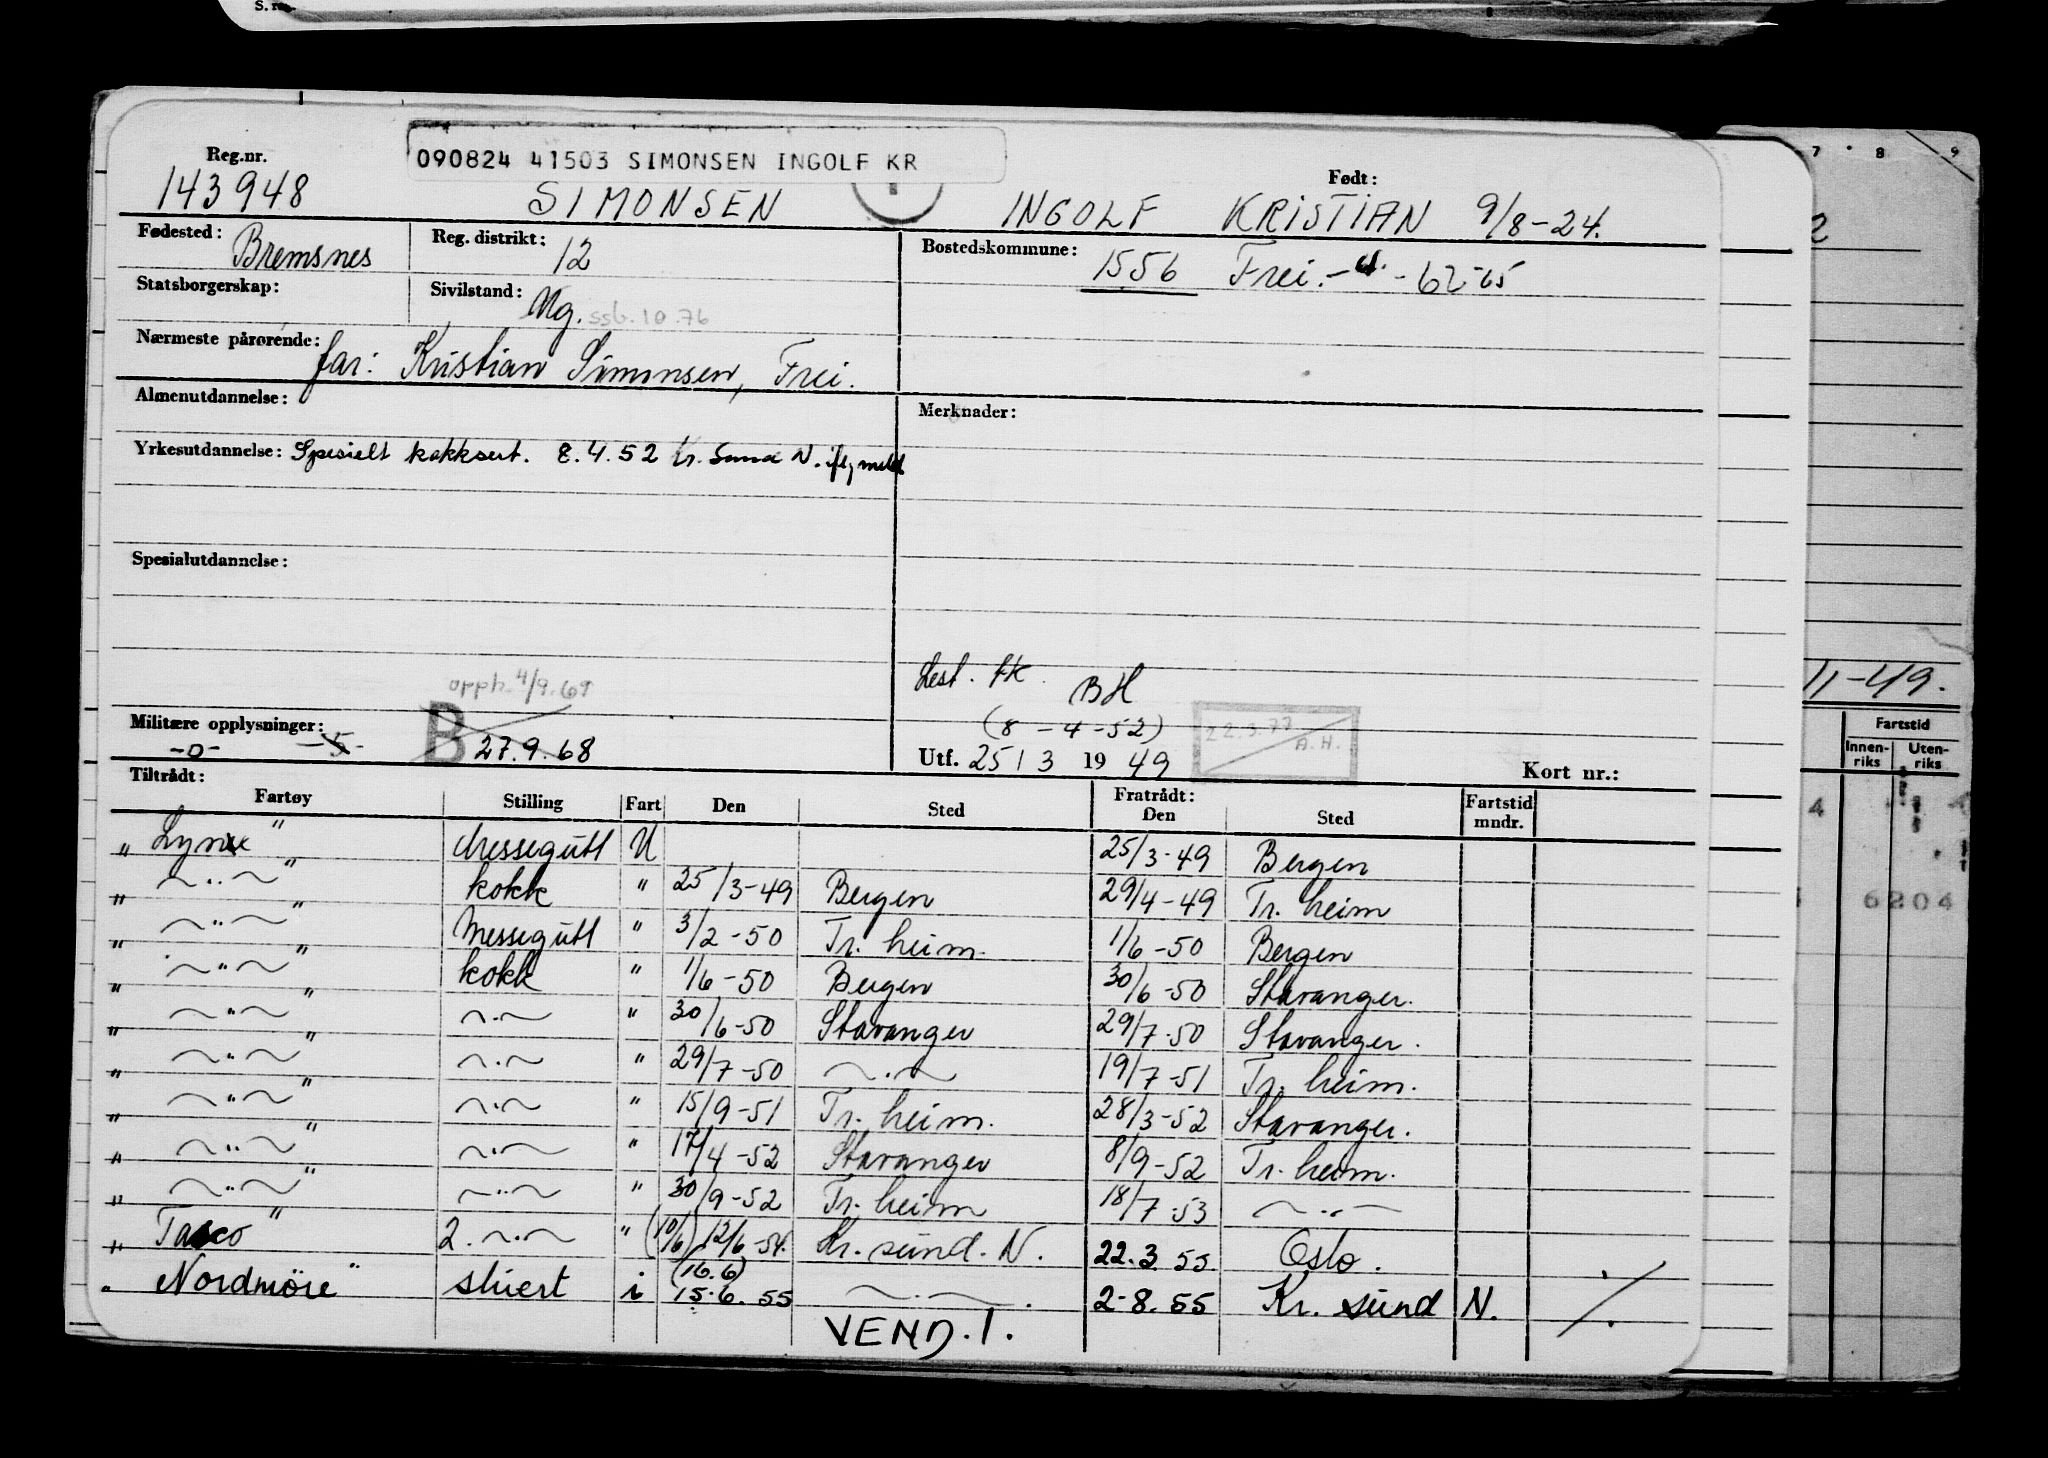 S.
090824 41503 SIMONSEN INGOLF KR
Reg.nr. Født:
143948 SIMONSEN INGOLF KRISTIAN 9/8-24.
Fødested: Bremsnes Reg. distrikt: 12 Bostedskommune: 1556 Frei. - - 62-65
Statsborgerskap: Sivilstand: Ug. ssb. 10.76
Nærmeste pårørende: far: Kristian Simonsen, Frei.
Almenutdannelse: Merknader:
Yrkesutdannelse: Spesielt kokksert. 8.4.52 Kr. Sund N. iflg meld
Spesialutdannelse:
opph. 4/9.69 BH
Militære opplysninger: (8-4-52) 22.3.77 A.H.
-0- -5- B 27.9.68 Utf. 25/3 1949 Kort nr.:
Tiltrådt: Fratrådt:
Fartøy Stilling Fart Den Sted Den Sted Fartstid mndr.
" Lynx " Messegutt U 25/3-49 Bergen
" ~"~ " kokk " 25/3-49 Bergen 29/4-49 Tr. heim
" ~"~ " Messegutt " 3/2-50 Tr. heim. 1/6-50 Bergen
" ~"~ " kokk " 1/6-50 Bergen 30/6-50 Stavanger.
" ~"~ " ~"~ " 30/6-50 Stavanger 29/7-50 Stavanger.
" ~"~ " ~"~ " 29/7-50 ~"~ 19/7-51 Tr. heim.
" ~"~ " ~"~ " 15/9-51 Tr. heim. 28/3-52 Stavanger.
" ~"~ " ~"~ " 17/4-52 Stavanger 8/9-52 Tr. heim.
" ~"~ " ~"~ " 30/9-52 Tr. heim 18/7-53 ~"~
" Tasco " 2. ~"~ " (10/6) 12/6-54. Kr. sund. N. 22.3.55 Oslo.
" Nordmöre " stuert i (16.6) 15.6.55 ~"~. 2-8.55 Kr. sund N. ./.
VEND.!.
7 8 9
2
11-49.
Fartstid
Innen-riks Uten-riks
4
6204